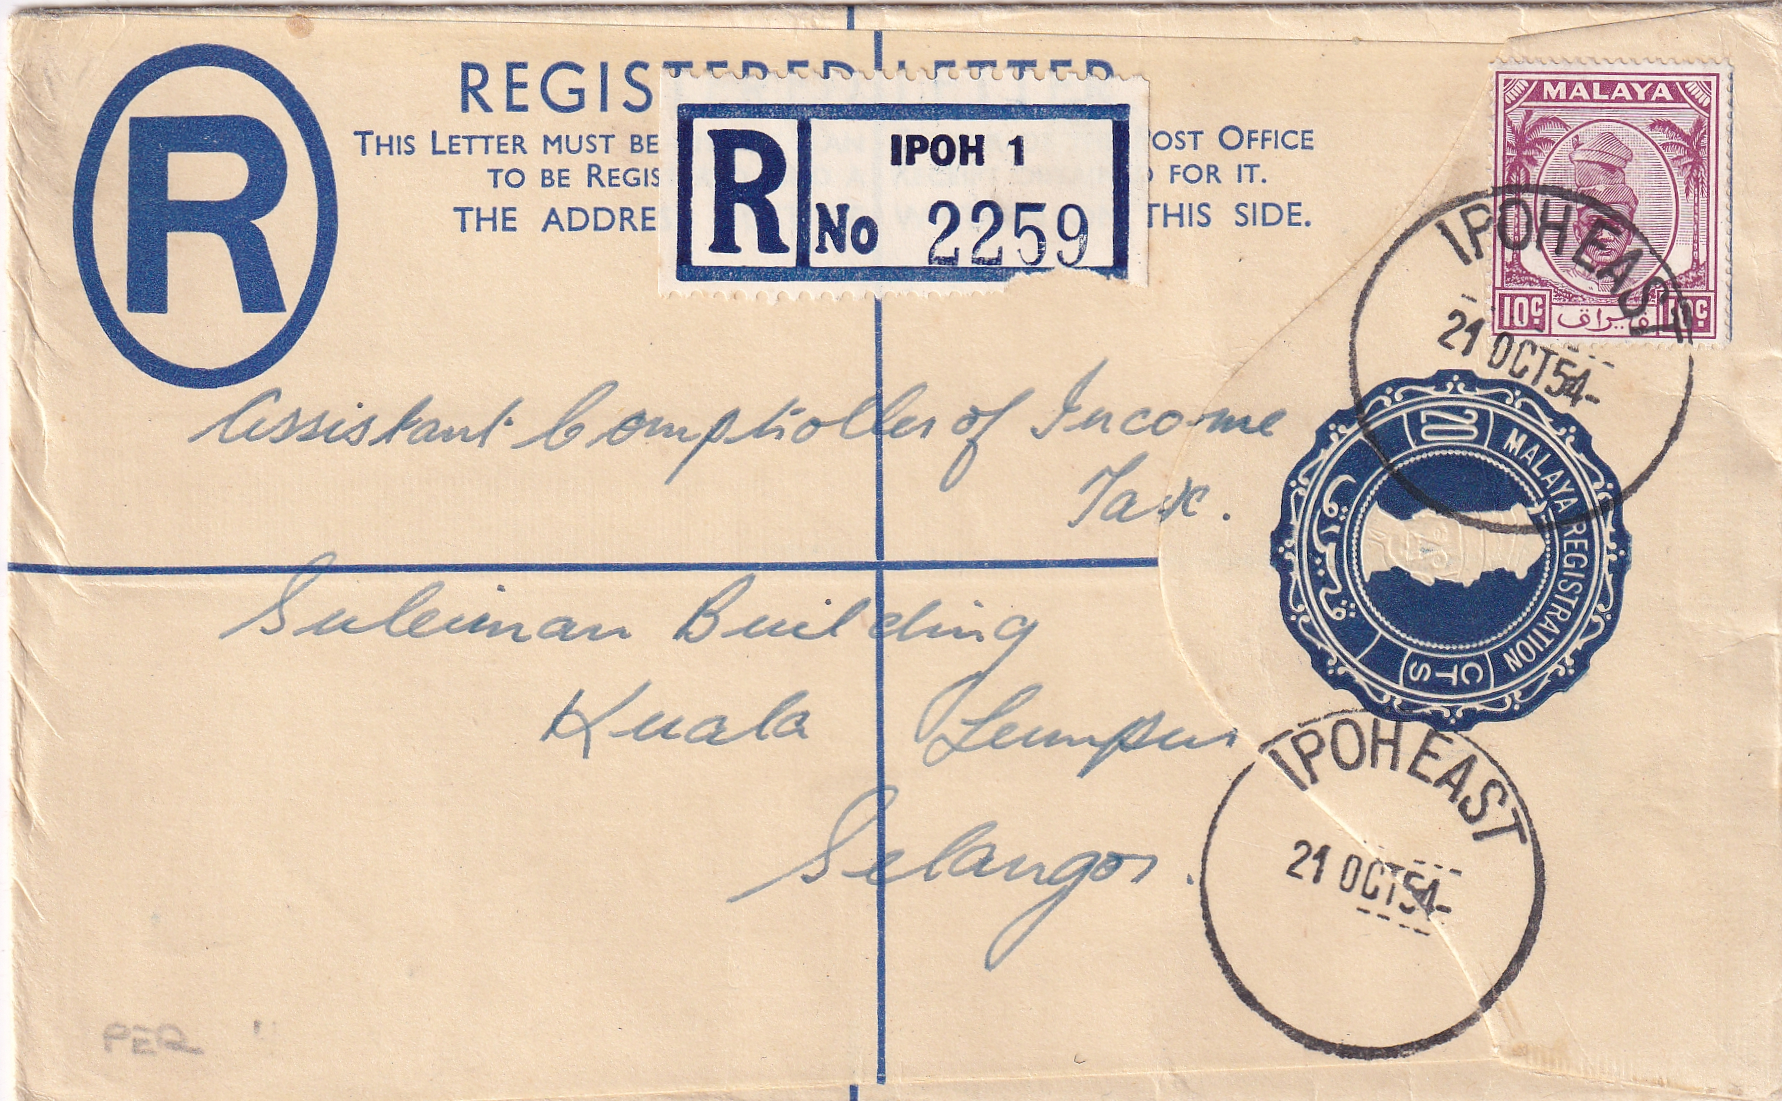 R
REGIS
THIS LETTER MUST BE OST OFFICE
TO BE REGIS FOR IT.
THE ADDRE THIS SIDE.
R
IPOH 1
No 2259
MALAYA
10c 10c
فيراق
IPOH EAST
21 OCT 54-
20
MALAYA REGISTRATION
CTS
Assistant Comptroller of Income
Tax.
Suleiman Building
Kuala Lumpur
Selangor.
IPOH EAST
21 OCT 54-
PER